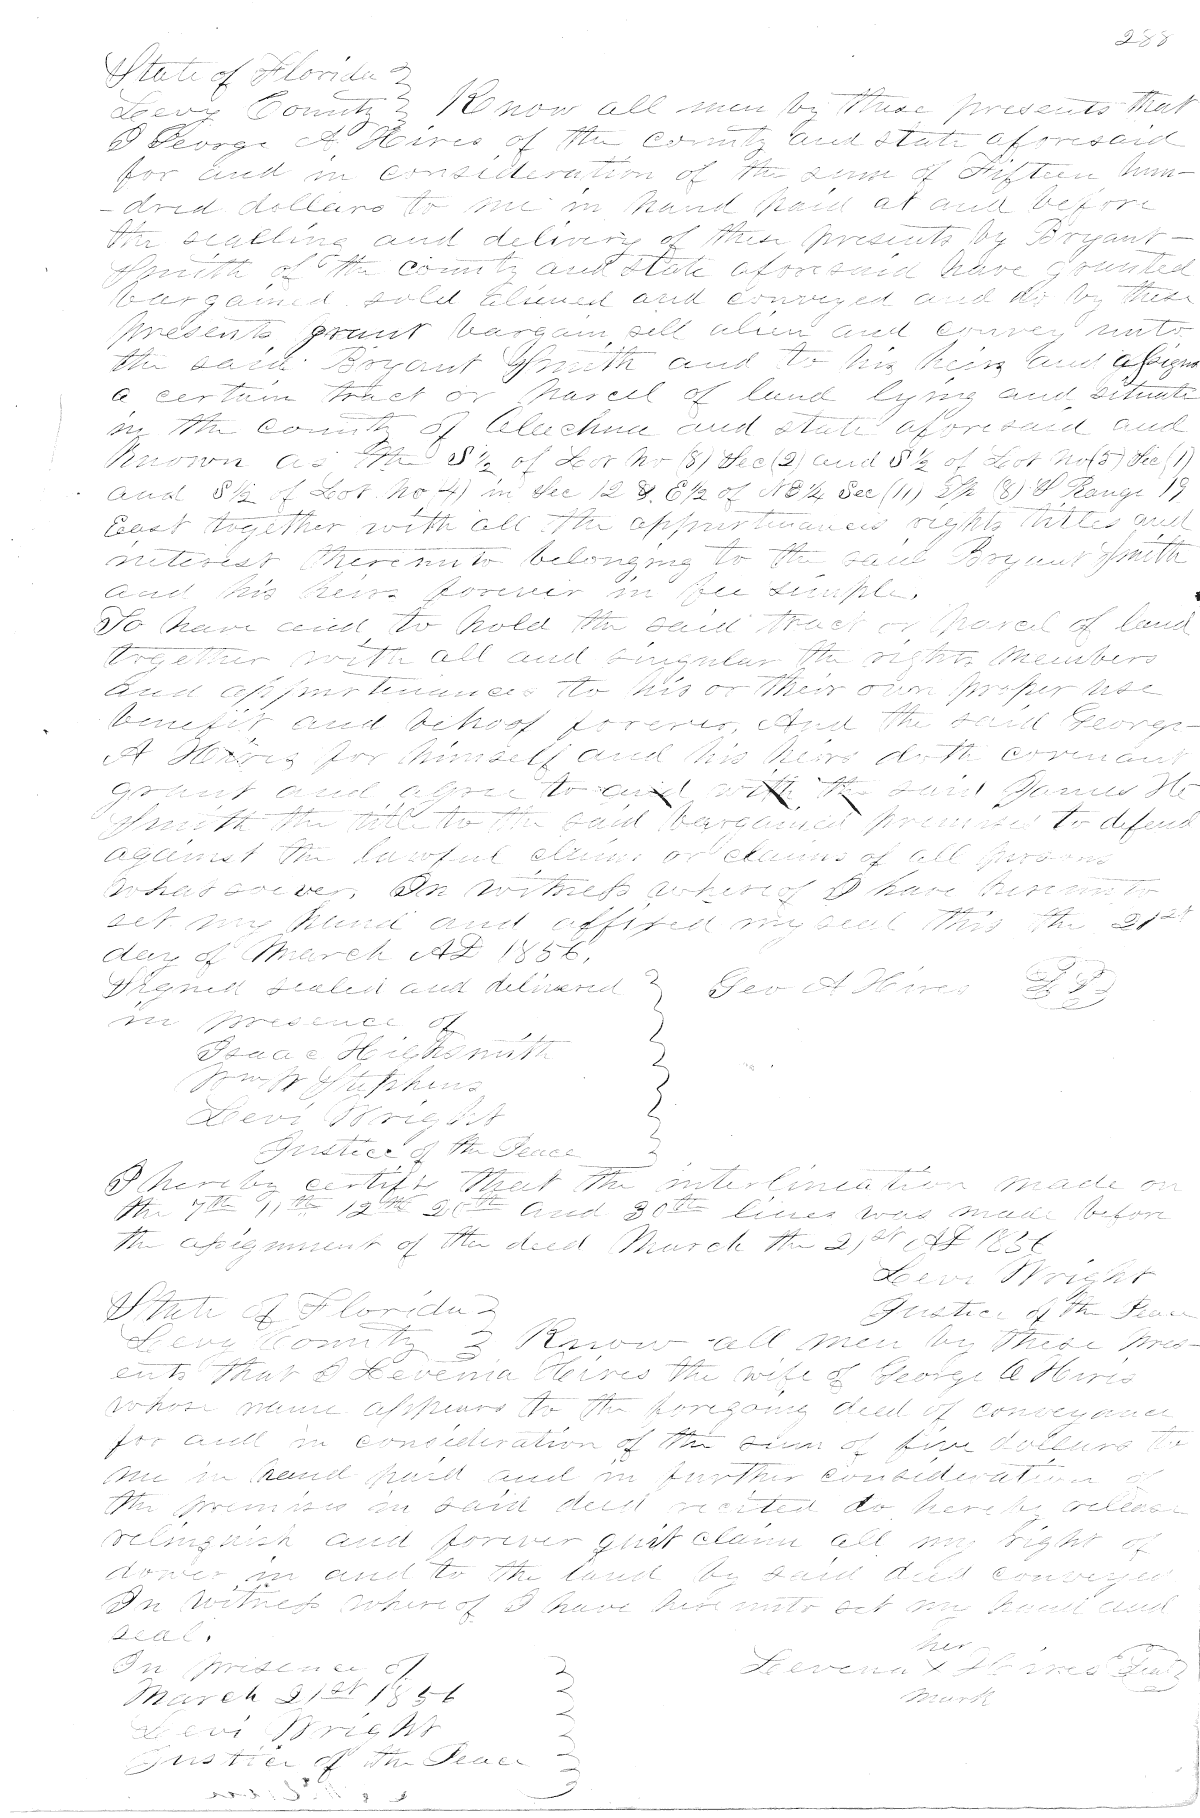 288
State of Florida }
Levy County } Know all men by these presents that
I George A Hires of the county and state aforesaid
for and in consideration of the sum of Fifteen hun-
-dred dollars to me in hand paid at and before
the sealling and delivery of these presents by Bryant-
Smith of the county and state aforesaid have granted
bargained sold aliened and conveyed and do by these
presents grant bargain sell alien and convey unto
the said Bryant Smith and to his heirs and assigns
a certain tract or parcel of land lying and situate
in the county of Alachua and state aforesaid and
Known as the S½ of Lot No (8) Sec (2) and S½ of Lot No (5) Sec (1)
and S½ of Lot No (4) in Sec 12 & E½ of NE¼ Sec (11) Tp (8) S Range 19
East together with all the appurtenances rights titles and
interest thereunto belonging to the said Bryant Smith
and his heirs forever in fee simple.
To have and to hold the said tract or parcel of land
together with all and singular the rights members
and appurtenances to his or their own proper use
benefit and behoof forever. And the said George-
A Hires for himself and his heirs doth covenant
grant and agree to and with the said James
Smith the title to the said bargained premises to defend
against the lawful claim or claims of all persons
whatsoever. In witness whereof I have hereunto
set my hand and affixed my seal this the 21st
day of March AD 1856.
Signed sealed and delivered } Geo A Hires LS
in presence of
Isaac Highsmith
Wm W Stephens
Levi Wright
Justice of the Peace
I hereby certify that the interlineation made on
the 7th 11th 12th 20th and 30th lines was made before
the assignment of the deed March the 21st AD 1856
Levi Wright
Justice of the Peace
State of Florida }
Levy County } Know all men by these pres-
ents that I Levenia Hires the wife of George A Hires
whose name appears to the foregoing deed of conveyance
for and in consideration of the sum of five dollars to
me in hand paid and in further consideration of
the premises in said deed recited do hereby release
relinquish and forever quit claim all my right of
dower in and to the land by said deed conveyed
In witness whereof I have hereunto set my hand and
seal.
her
In presence of } Levena x Hires Seal
mark
March 21st 1856
Levi Wright
Justice of the Peace